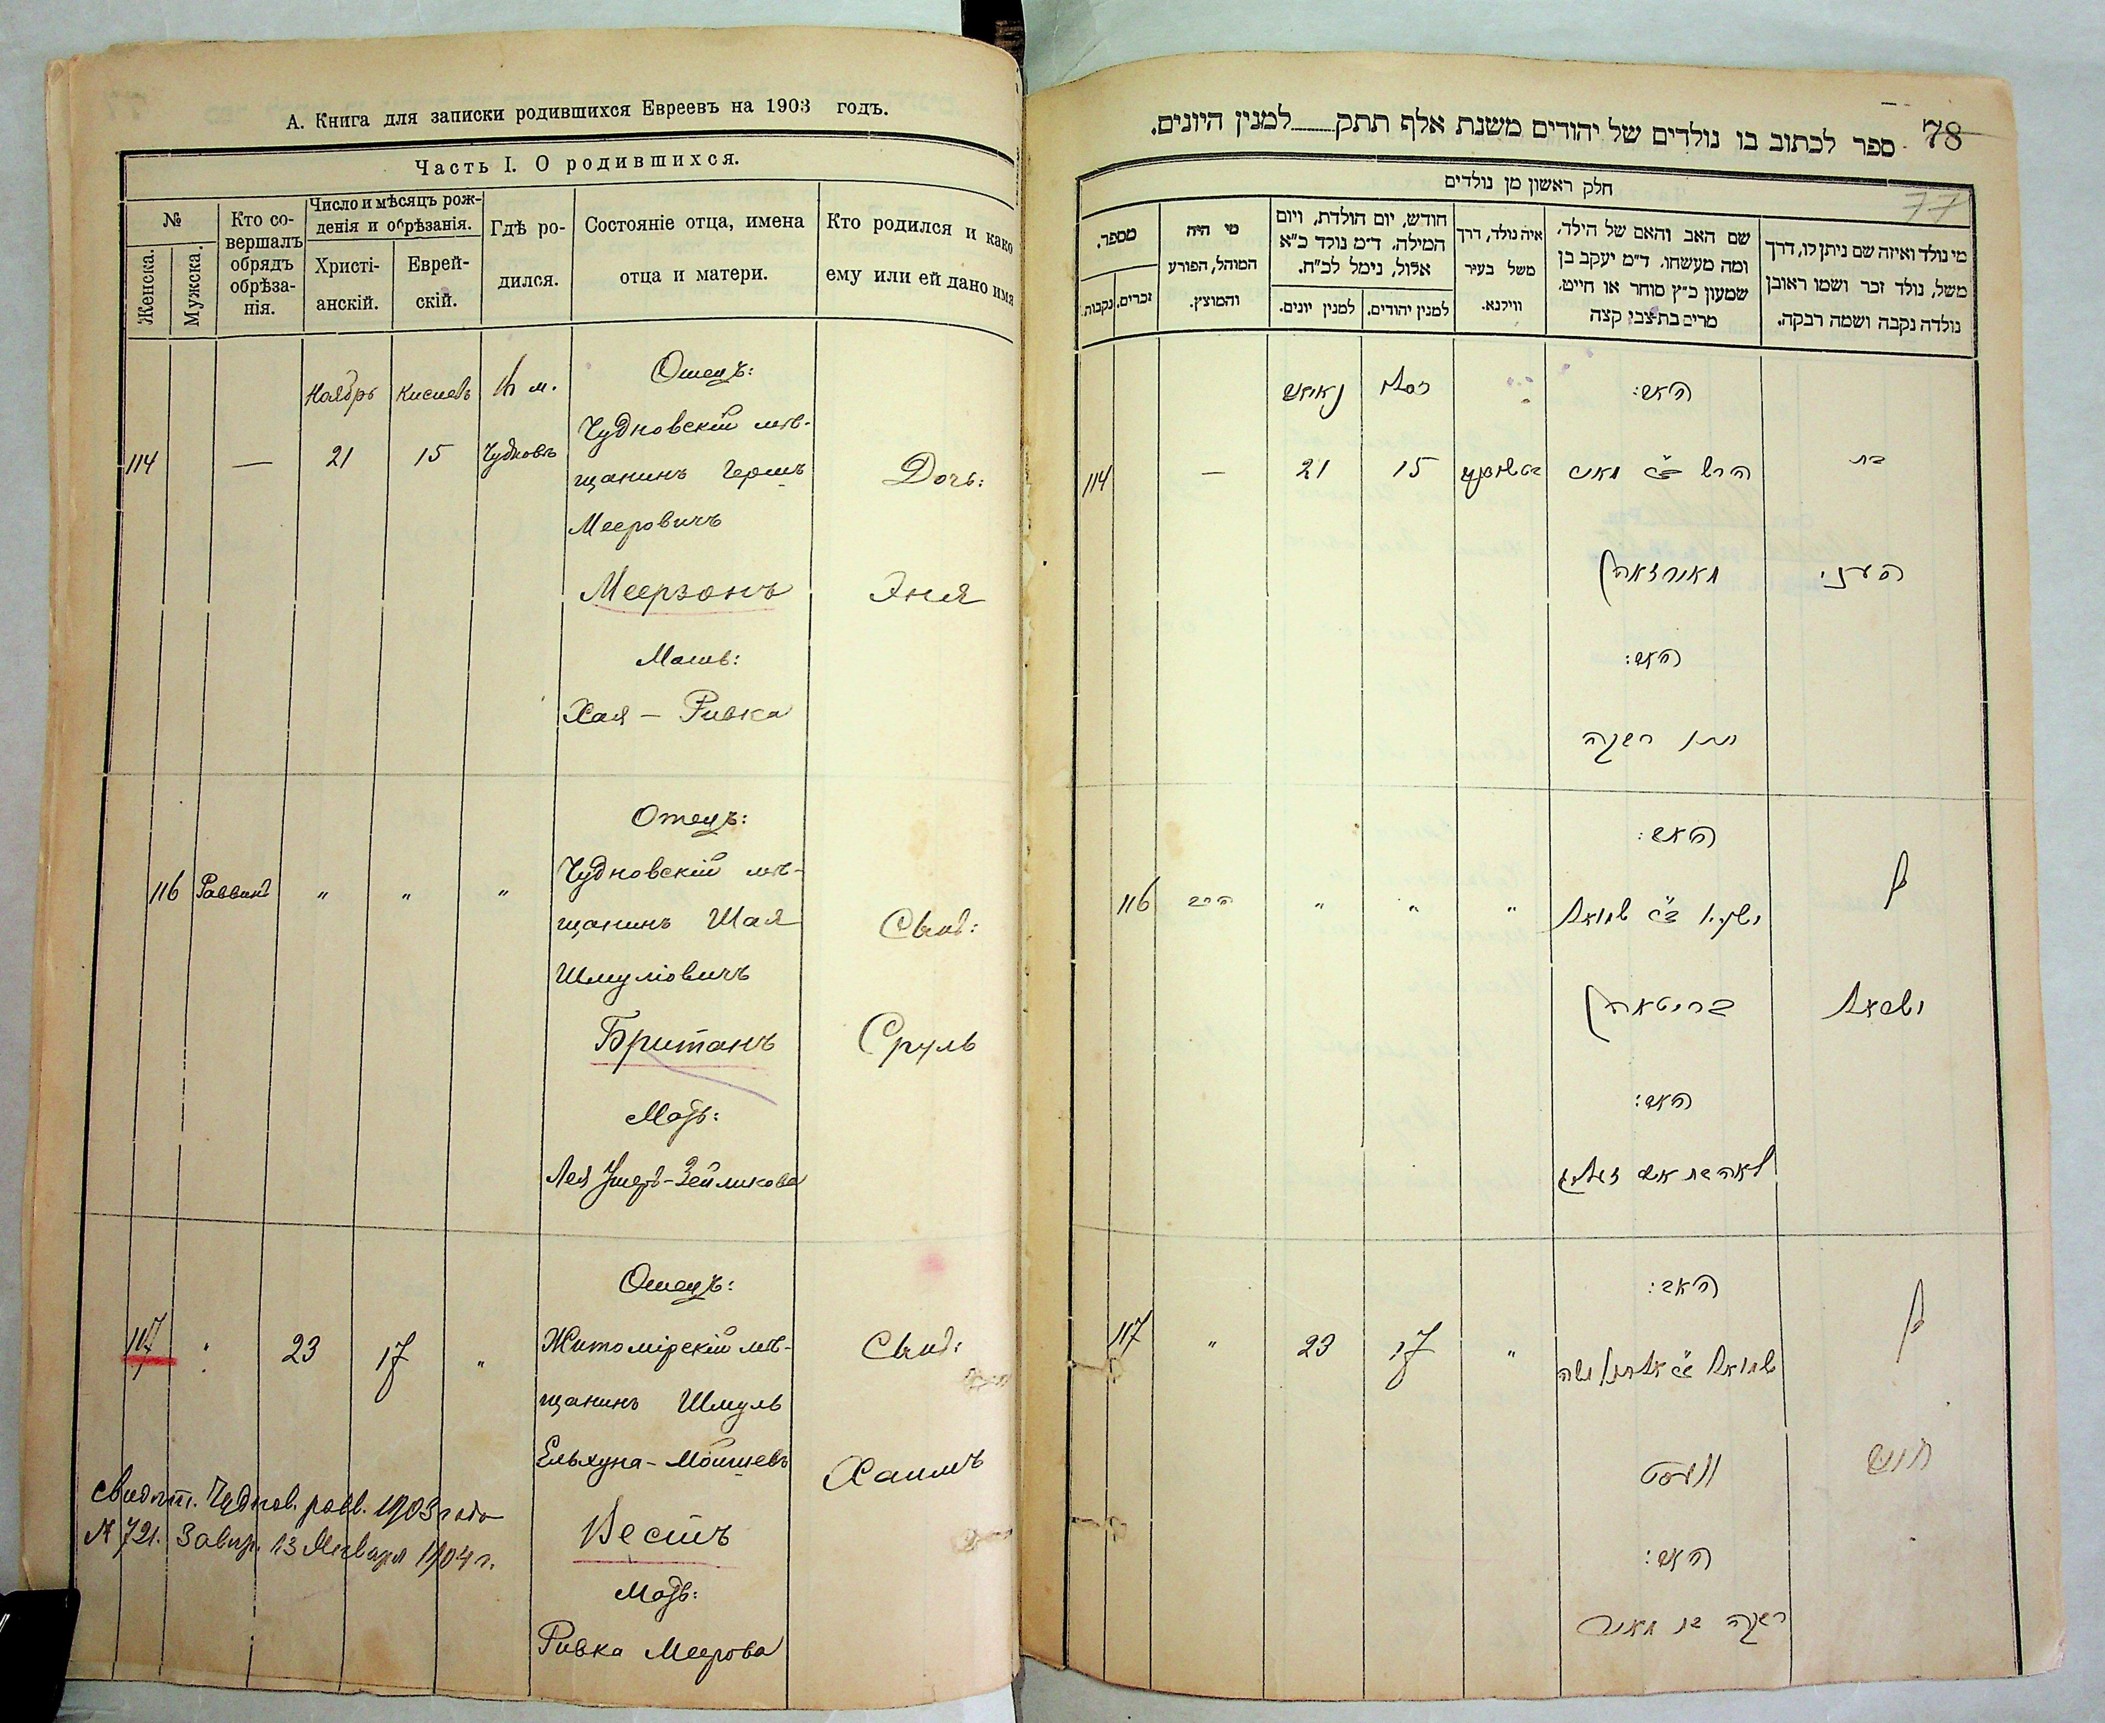 А. Книга для записки родившихся Евреевъ на 1903 годъ.
Часть I. О родившихся.
№
Женска.
Мужска.
Кто со-
вершалъ
обрядъ
обрѣза-
нія.
Число и мѣсяцъ рож-
денія и обрѣзанія.
Христі-
анскій.
Еврей-
скій.
Гдѣ ро-
дился.
Состояніе отца, имена
отца и матери.
Кто родился и како
ему или ей дано имя
114
—
Ноябрь
21
Кислевъ
15
м.
Чудновъ
Отецъ:
Чудновскій мѣ-
щанинъ Гершъ
Мееровичъ
Меерзонъ
Мать:
Хая – Ривка
Дочь:
Эня
116
Раввинъ
"
"
"
Отецъ:
Чудновскій мѣ-
щанинъ Шая
Шмуліовичъ
Британъ
Мать:
Лея Ушеръ-Зейликова
Сынъ:
Сруль
117
"
23
17
"
Отецъ:
Житомірскій мѣ-
щанинъ Шмуль
Ельхуна-Мошковъ
Вестъ
Мать:
Ривка Меерова
Сынъ:
Хаимъ
Свидѣт. Чуднов. равв. 1903 года
№ 721. Завѣр. 13 Января 1904 г.
78
77
ספר לכתוב בו נולדים של יהודים משנת אלף תתק למנין היונים.
חלק ראשון מן נולדים
מי נולד ואיזה שם ניתן לו, דרך
משל, נולד זכר ושמו ראובן
נולדה נקבה ושמה רבקה.
שם האב והאם של הילד.
ומה מעשהו. ד״מ יעקב בן
שמעון כ״ץ סוחר או חייט.
מרים בת צבי קצה
איה נולד, דרך
משל בעיר
ווילנא.
חודש, יום הולדת, ויום
המילה. ד״מ נולד כ״א
אלול, נימל לכ״ח.
למנין יהודים.
למנין יונים.
מי היה
המוהל, הפורע
והמוצץ.
מספר.
זכרים.
נקבות.
האב:
הרש ב״ר מאיר
מאירזאהן
האם:
חי׳ רבקה
בת
כסלו
15
21
—
114
בן
האב:
ישעי׳ ב״ר שמואל
בריטאהן
האם:
לאה בת אשר זעליג
ישראל
"
"
"
הרב
116
בן
האב:
שמואל ב״ר אלחנן משה
וועסט
האם:
רבקה בת מאיר
חיים
"
17
23
"
117